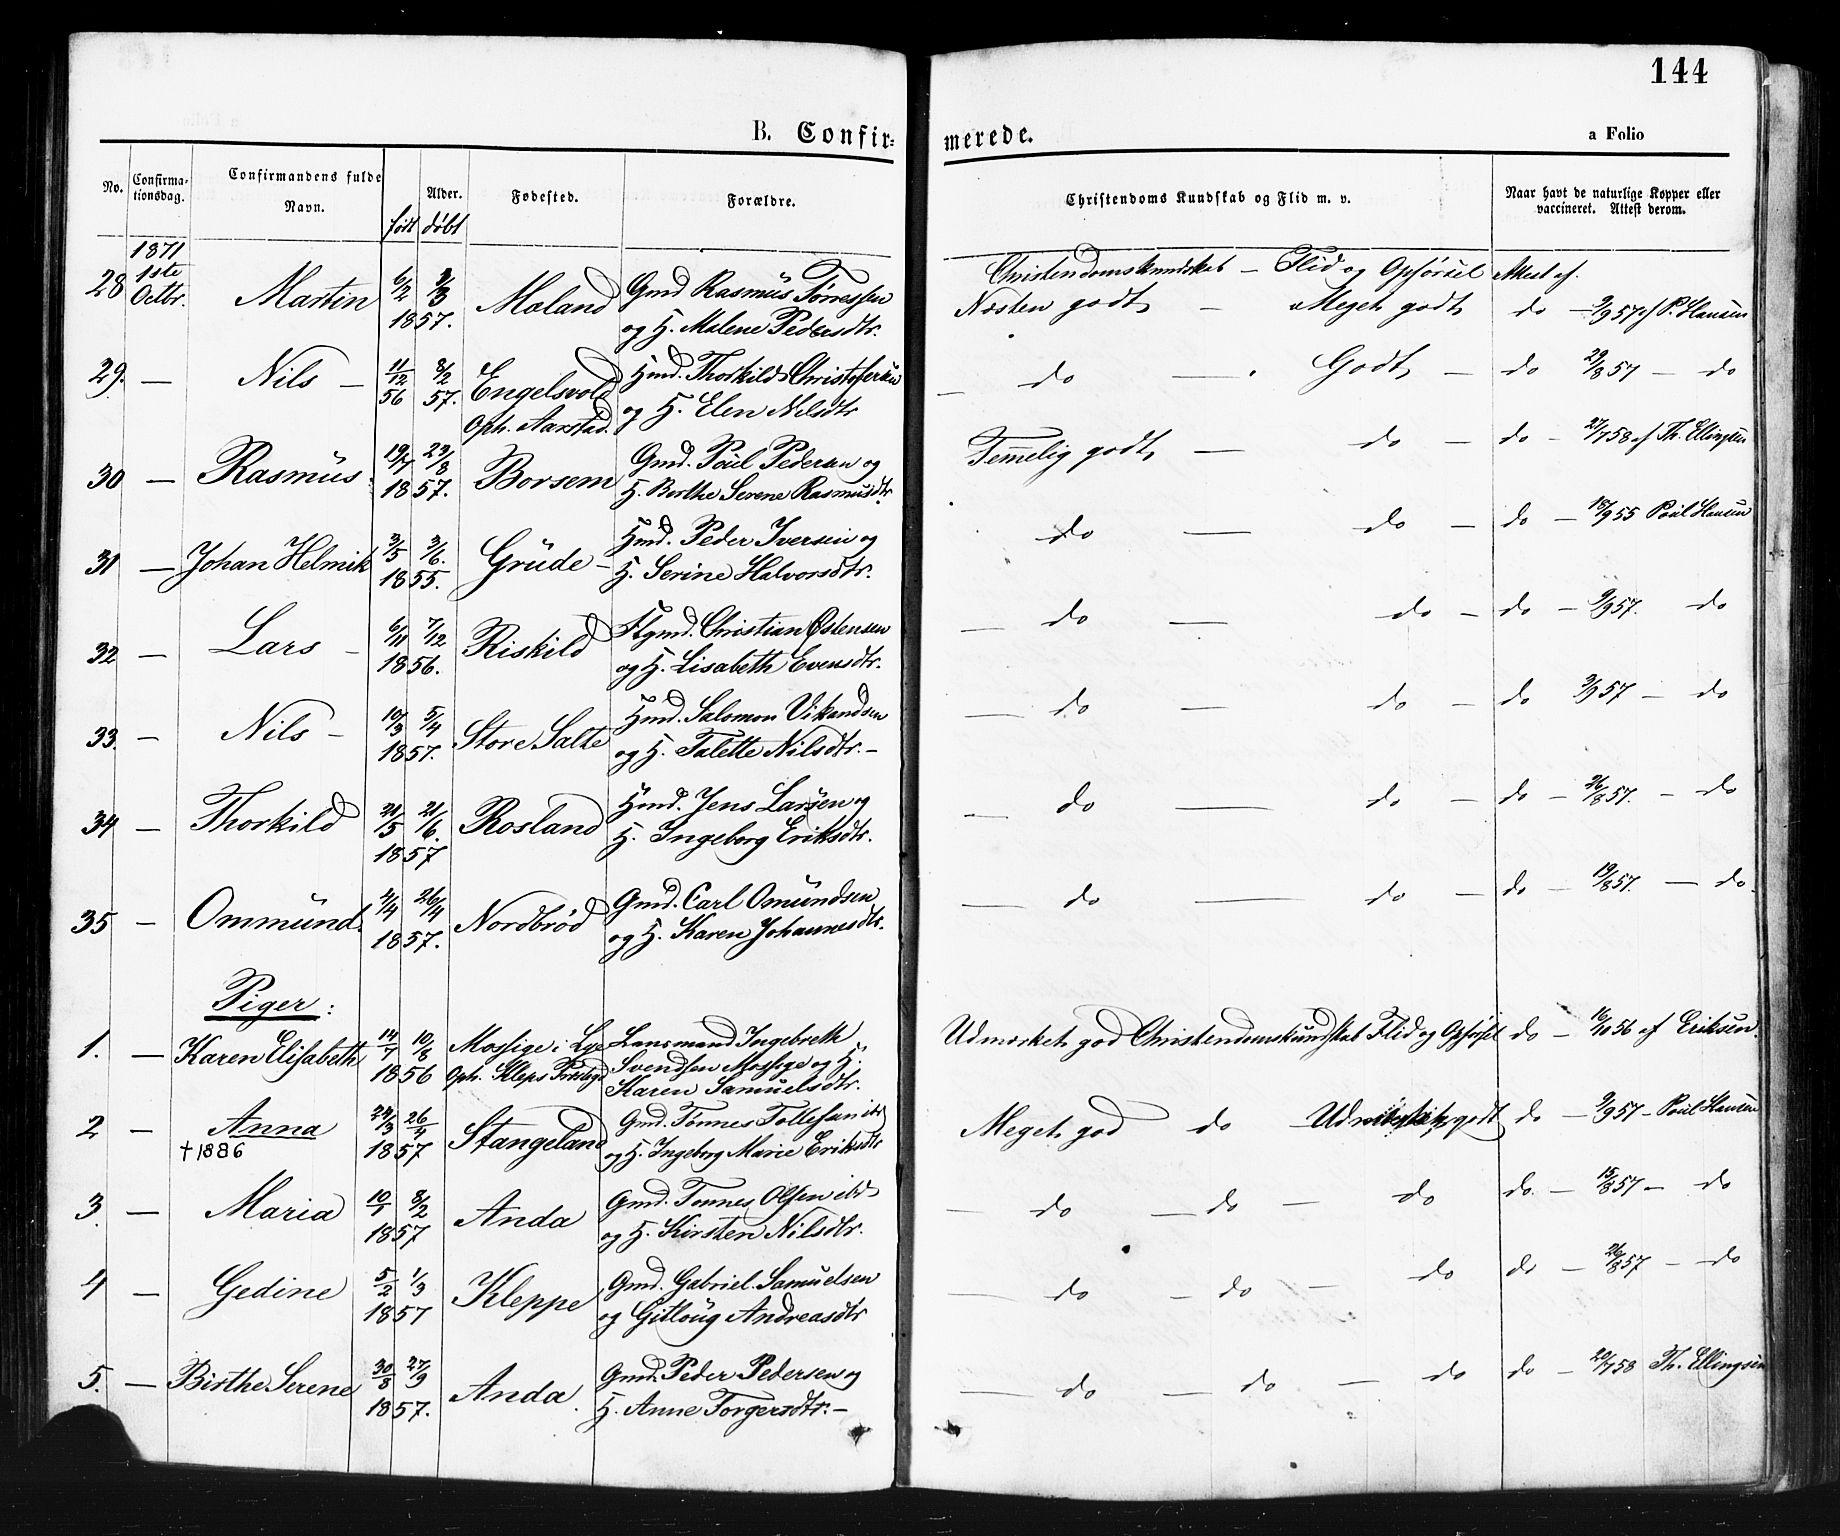 144
B. Confirmerede.
a Folio
No.
Confirmationsdag.
Confirmandens fulde Navn.
Alder.
født døbt
Fødested.
Forældre.
Christendoms Kundskab og Flid m. v.
Naar havt de naturlige Kopper eller vaccineret. Attest derom.
1871
Christendomskundskab – Flid og Opførsel Attest af.
28 1ste Octbr. Martin 6/2 3/3 1857. Moland Gmd Rasmus Tørressen
og H. Malene Pedersdtr.
Næsten godt – Meget godt do – 9/9 57 af P. Hansen
29. — Nils – 11/12 56 8/2 57. Engelsvold Hmd. Thorkild Christofersen
Oph. Aarstad. og H. Elen Nilsdtr
— do — Godt – do 29/8 57 – do
30 — Rasmus 19/7 23/8 1857. Borsem Gmd. Poul Pedersen og
H. Berthe Serene Rasmusdtr.
Temmelig godt — do – do – 27/7 58 af Th. Ellingsen
31 — Johan Helmik 3/5 3/6. 1855. Grude – Hmd. Peder Iversen og
H. Serine Halvorsdtr.
do — do – do – 18/9 55 Poul Hansen
32 — Lars – 6/11 7/12 1856. Riskild Flgmd. Christian Østensen
og H. Lisabeth Evensdtr.
— do — do – do – 9/9 57. do
33. – Nils – 10/3 5/4 1857. Store Salte Hmd. Salomon Vikandsen
og H. Talette Nilsdtr. –
— do – do – do 3/9 57 – do
34 — Thorkild 21/5 21/6. 1857 Rosland Hmd. Jens Larsen og
H. Ingeborg Eriksdtr.
— do — do – do – 26/8 57. – do
35 – Ommund 4/4 26/4 1857. Nordbrød Gmd. Carl Omundsen
og H. Karen Johannesdtr.
— do — do – do – 19/8 57. — do.
Piger:
1. — Karen Elisabeth 14/7 10/8 1856 Mossige i Lye Lensmand Ingebreth
Oph. Kleps Præstegd Svendsen Mossige og H.
Karen Samuelsdtr.
Udmærket god Christendomskundskab Flid og Opførsel do – 16/10 56 af Eriksen.
2 – Anna 24/3 26/4 1857 Stangeland Gmd. Tønnes Tollefsen ibd
† 1886 og H. Ingeborg Marie Eriksdtr
Meget god do – Udmærket godt do – 9/9 57 – Poul Hansen
3. — Maria 10/1 8/2 1857 Anda Gmd. Tønnes Olsen ibd
og H. Kirsten Nilsdtr.
— do — do – do do. – 15/8 57 – do
4 – Gedine 5/2 1/3 1857 Kleppe Gmd. Gabriel Samuelsen
og Gitloug Andreasdtr
— do – do – do do – 26/8 57 – do
5. — Birthe Serene 30/8 27/9 1857. Anda. Gmd. Peder Pedersen og
H. Anne Torgersdtr. –
— do — do – do do – 20/7 58 Th. Ellingsen